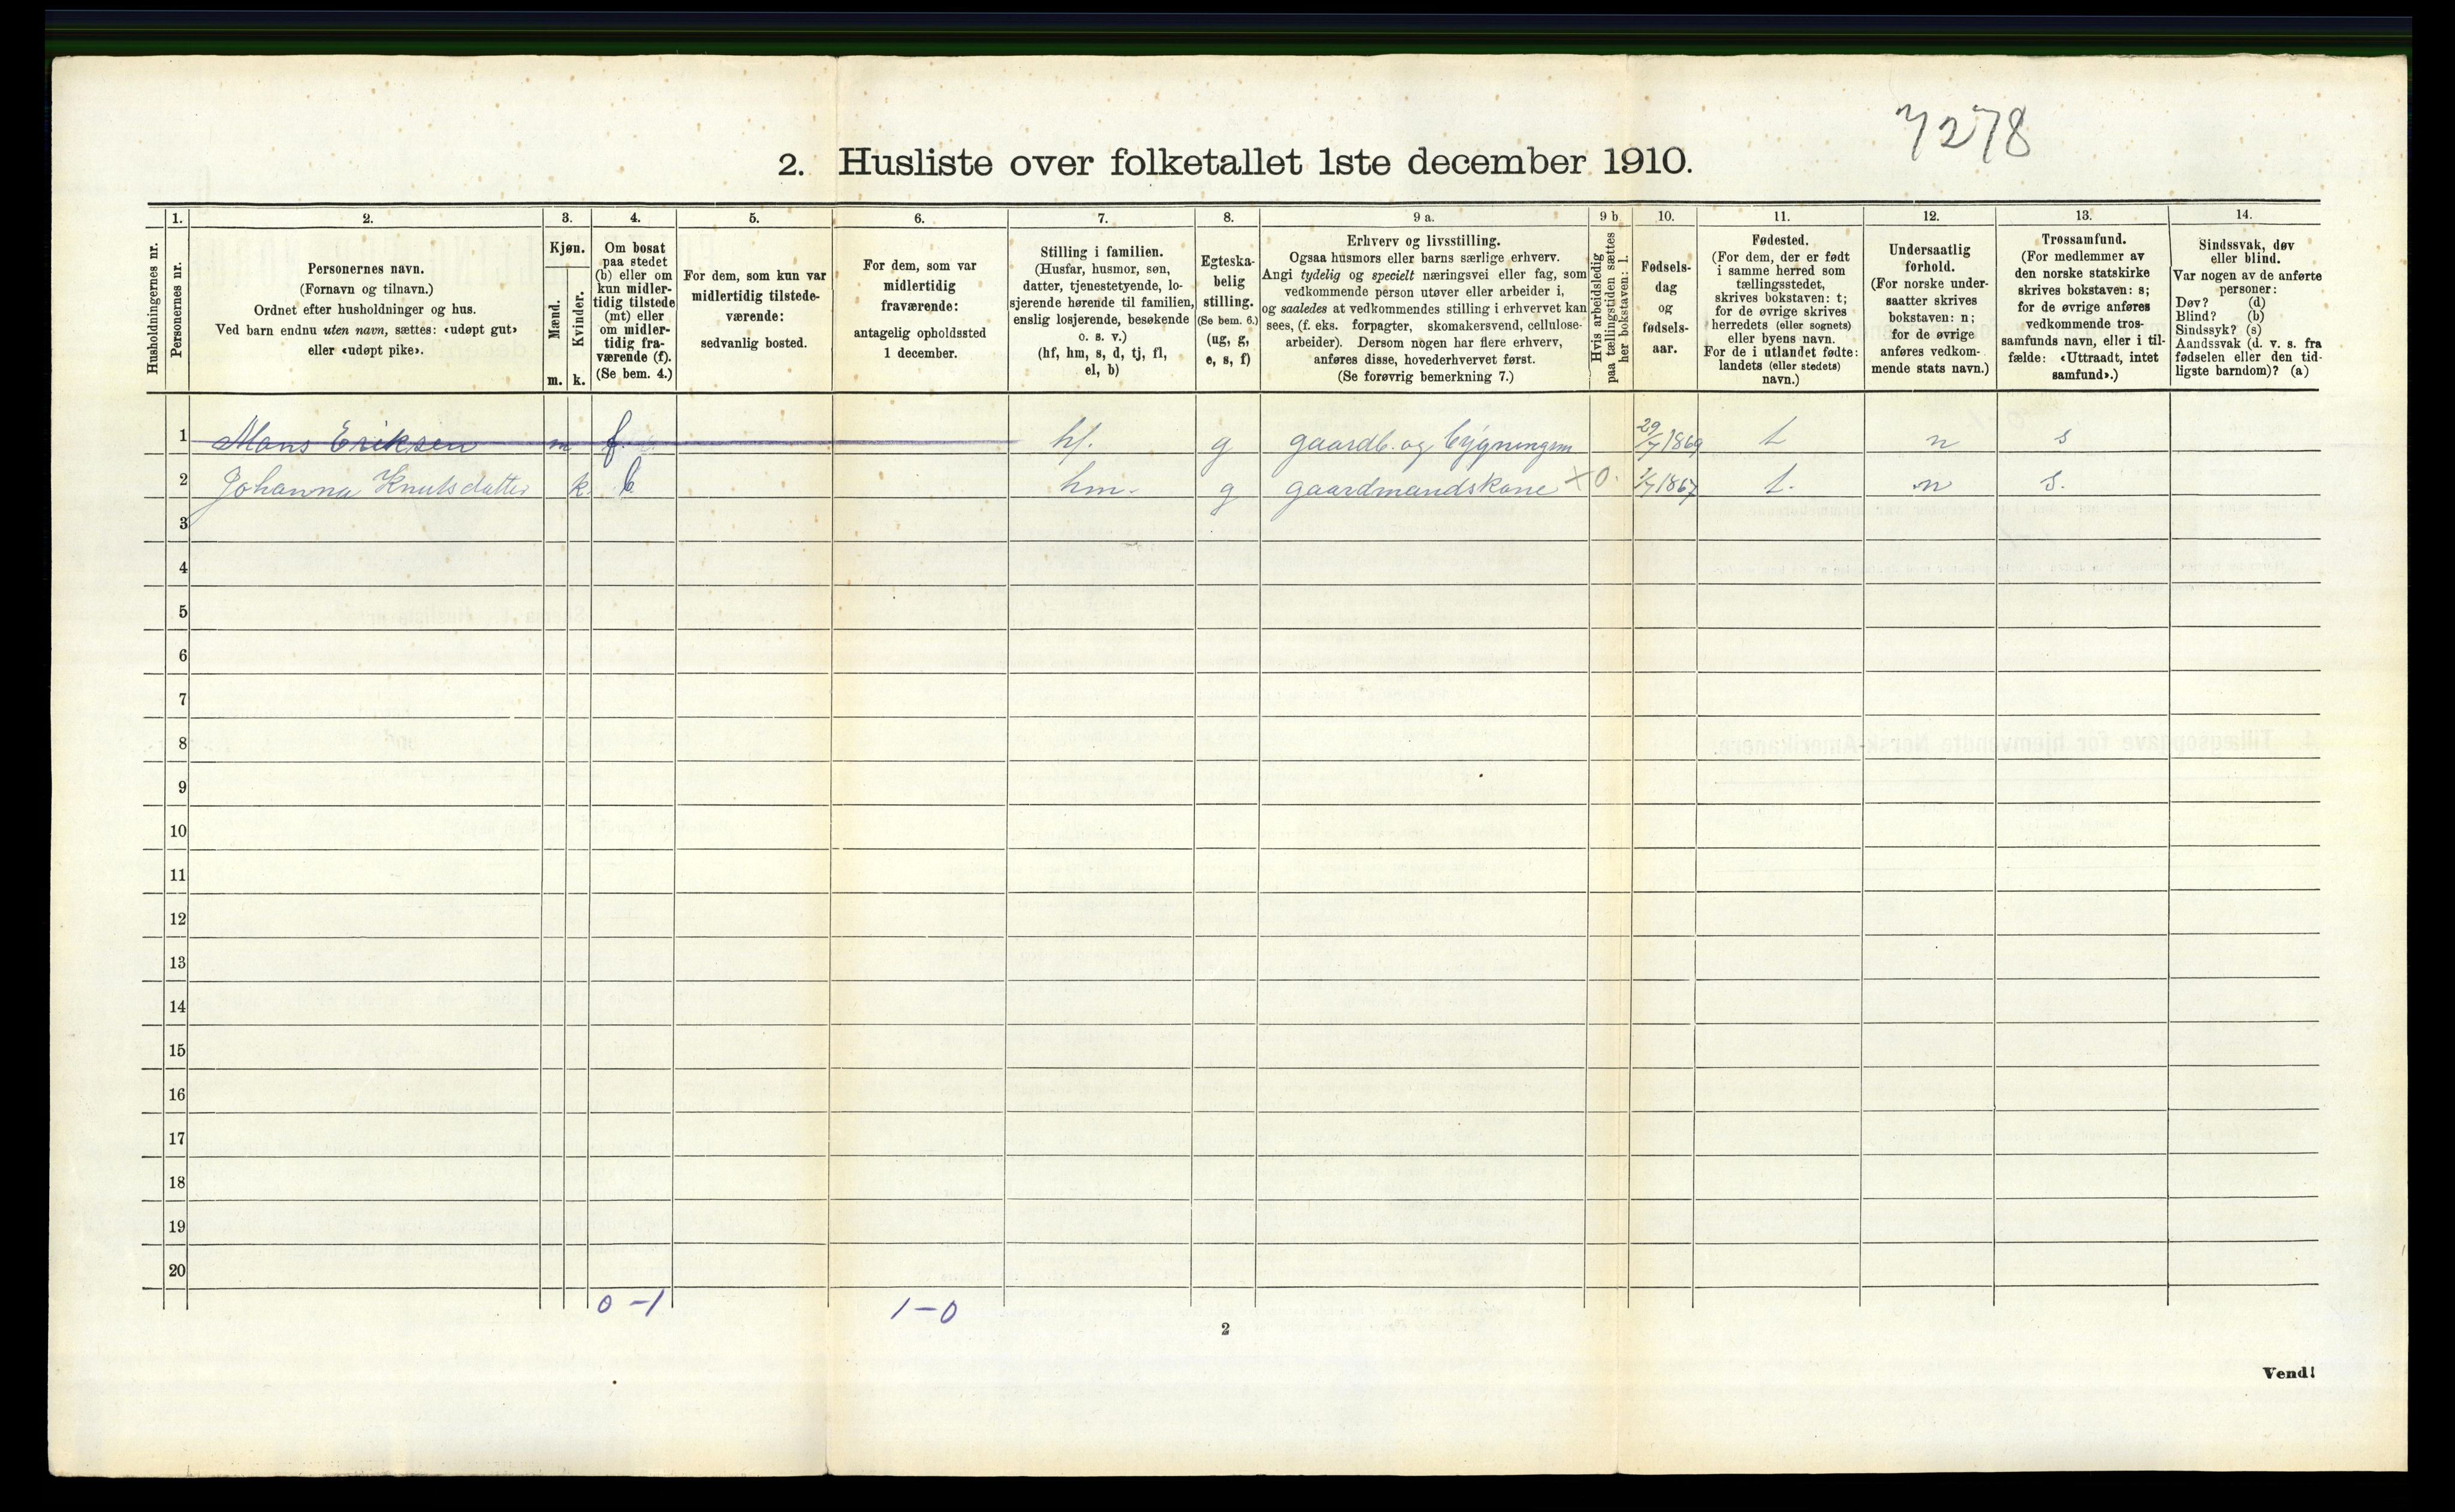 7278
2. Husliste over folketallet 1ste december 1910.
1. 2. 3. 4. 5. 6. 7. 8. 9 a. 9 b 10. 11. 12. 13. 14.
Husholdningernes nr.
Personernes nr.
Personernes navn.
(Fornavn og tilnavn.)
Ordnet efter husholdninger og hus.
Ved barn endnu uten navn, sættes: «udøpt gut»
eller «udøpt pike».
Kjøn.
Mænd.
Kvinder.
m. k.
Om bosat
paa stedet
(b) eller om
kun midler-
tidig tilstede
(mt) eller
om midler-
tidig fra-
værende (f).
(Se bem. 4.)
For dem, som kun var
midlertidig tilstede-
værende:
sedvanlig bosted.
For dem, som var
midlertidig
fraværende:
antagelig opholdssted
1 december.
Stilling i familien.
(Husfar, husmor, søn,
datter, tjenestetyende, lo-
sjerende hørende til familien,
enslig losjerende, besøkende
o. s. v.)
(hf, hm, s, d, tj, fl,
el, b)
Egteska-
belig
stilling.
(Se bem. 6.)
(ug, g,
e, s, f)
Erhverv og livsstilling.
Ogsaa husmors eller barns særlige erhverv.
Angi tydelig og specielt næringsvei eller fag, som
vedkommende person utøver eller arbeider i,
og saaledes at vedkommendes stilling i erhvervet kan
sees, (f. eks. forpagter, skomakersvend, cellulose-
arbeider). Dersom nogen har flere erhverv,
anføres disse, hovederhvervet først.
(Se forøvrig bemerkning 7.)
Hvis arbeidsledig
paa tællingstiden sættes
her bokstaven: l.
Fødsels-
dag
og
fødsels-
aar.
Fødested.
(For dem, der er født
i samme herred som
tællingsstedet,
skrives bokstaven: t;
for de øvrige skrives
herredets (eller sognets)
eller byens navn.
For de i utlandet fødte:
landets (eller stedets)
navn.)
Undersaatlig
forhold.
(For norske under-
saatter skrives
bokstaven: n;
for de øvrige
anføres vedkom-
mende stats navn.)
Trossamfund.
(For medlemmer av
den norske statskirke
skrives bokstaven: s;
for de øvrige anføres
vedkommende tros-
samfunds navn, eller i til-
fælde: «Uttraadt, intet
samfund».)
Sindssvak, døv
eller blind.
Var nogen av de anførte
personer:
Døv? (d)
Blind? (b)
Sindssyk? (s)
Aandssvak (d. v. s. fra
fødselen eller den tid-
ligste barndom)? (a)
1 Mons Eriksen m f. hf. g gaardb. og bygningsm 29/7 1869 t n s
2 Johanna Knutsdatter k. b hm. g gaardmandskone × 0. 1/7 1867 t. n s.
3
4
5
6
7
8
9
10
11
12
13
14
15
16
17
18
19
20
0 - 1 1 - 0
2
Vend!